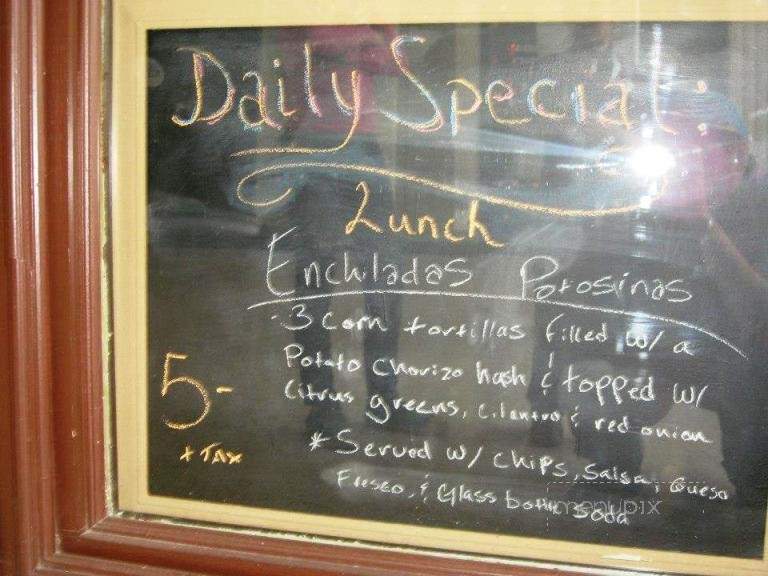 Daily Special:
Lunch
Enchiladas Potosinas
- 3 corn tortillas filled w/ a
Potato chorizo hash & topped w/
citrus greens, cilantro & red onion
5-
+ TAX
* Served w/ chips, salsa, Queso
Fresco, & Glass bottle soda
menupix